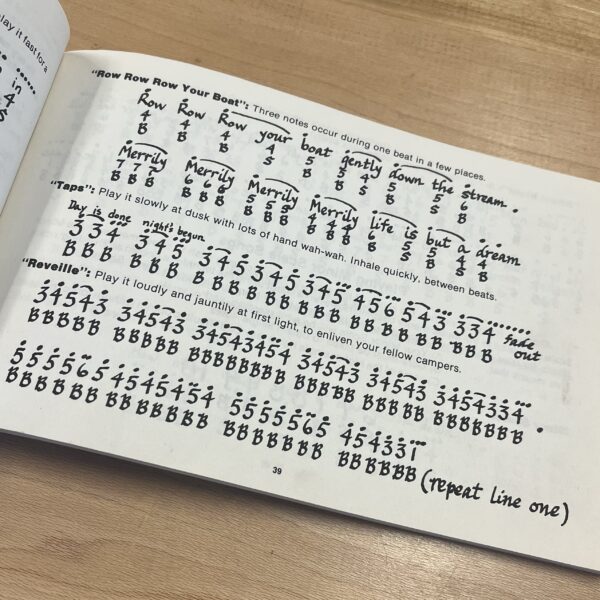 play it fast for a
in
4
S
"Row Row Row Your Boat": Three notes occur during one beat in a few places.
Row Row Row your boat gently down the stream.
4 4 4 4 5 5 4 5 5 6
B B B S B B S B S B
Merrily Merrily Merrily Merrily life is but a dream
7 7 7 6 6 6 5 5 5 4 4 4 6 5 5 4 4
B B B B B B B B B B B B B S B S B
"Taps": Play it slowly at dusk with lots of hand wah-wah. Inhale quickly, between beats.
Day is done night's begun
3 3 4 3 4 5 3 4 5 3 4 5 3 4 5 4 5 6 5 4 3 3 3 4 fade out
B B B B B B B B B B B B B B B B B B B B B B B B
"Reveille": Play it loudly and jauntily at first light, to enliven your fellow campers.
34543 34543 34543454 34543 34543 3454334.
BBBBB BBBBB BBBBBBBB BBBBB BBBBB BBBBBBB
5555565 4545454 5555565 454331
BBBBBBB BBBBBBB BBBBBBB BBBBBB (repeat line one)
39